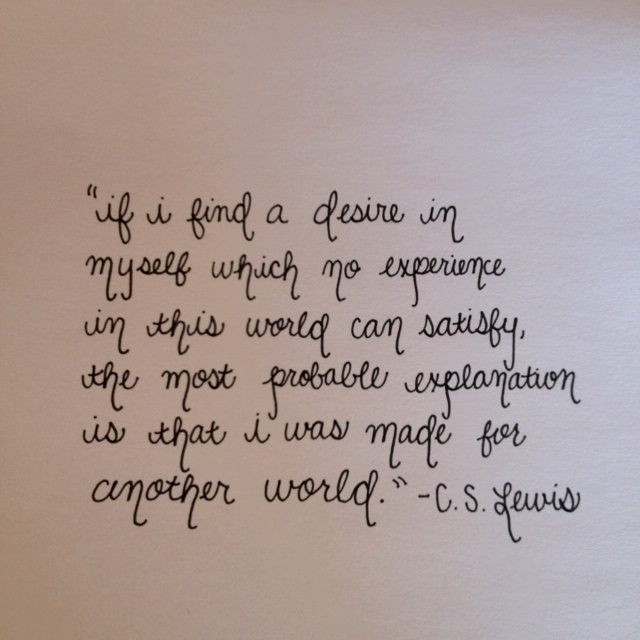 "if i find a desire in
myself which no experience
in this world can satisfy,
the most probable explanation
is that i was made for
another world." -C.S. Lewis